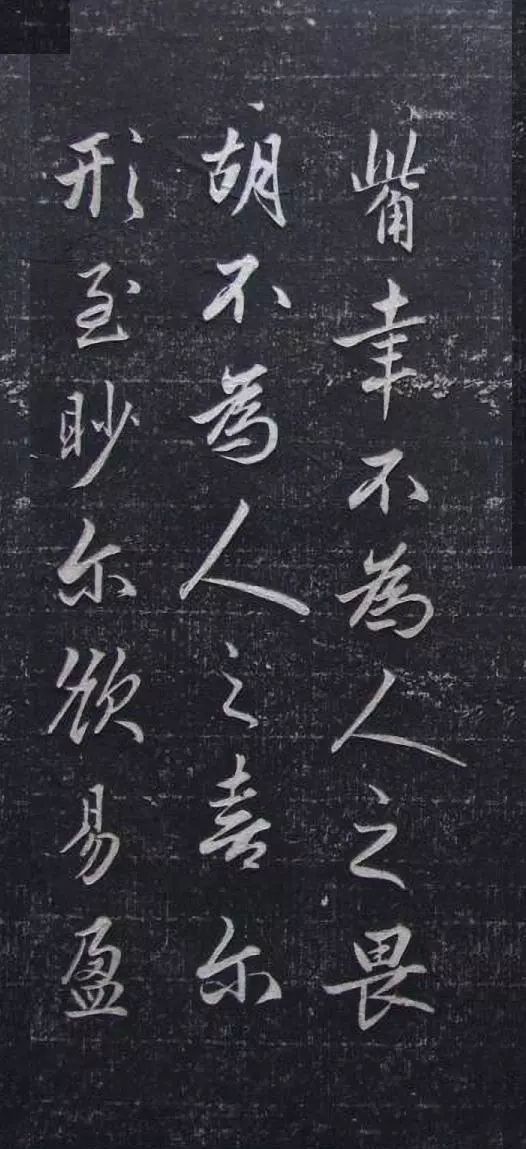 觜幸不為人之畏
胡不為人之喜尔
形至眇尔欲易盈